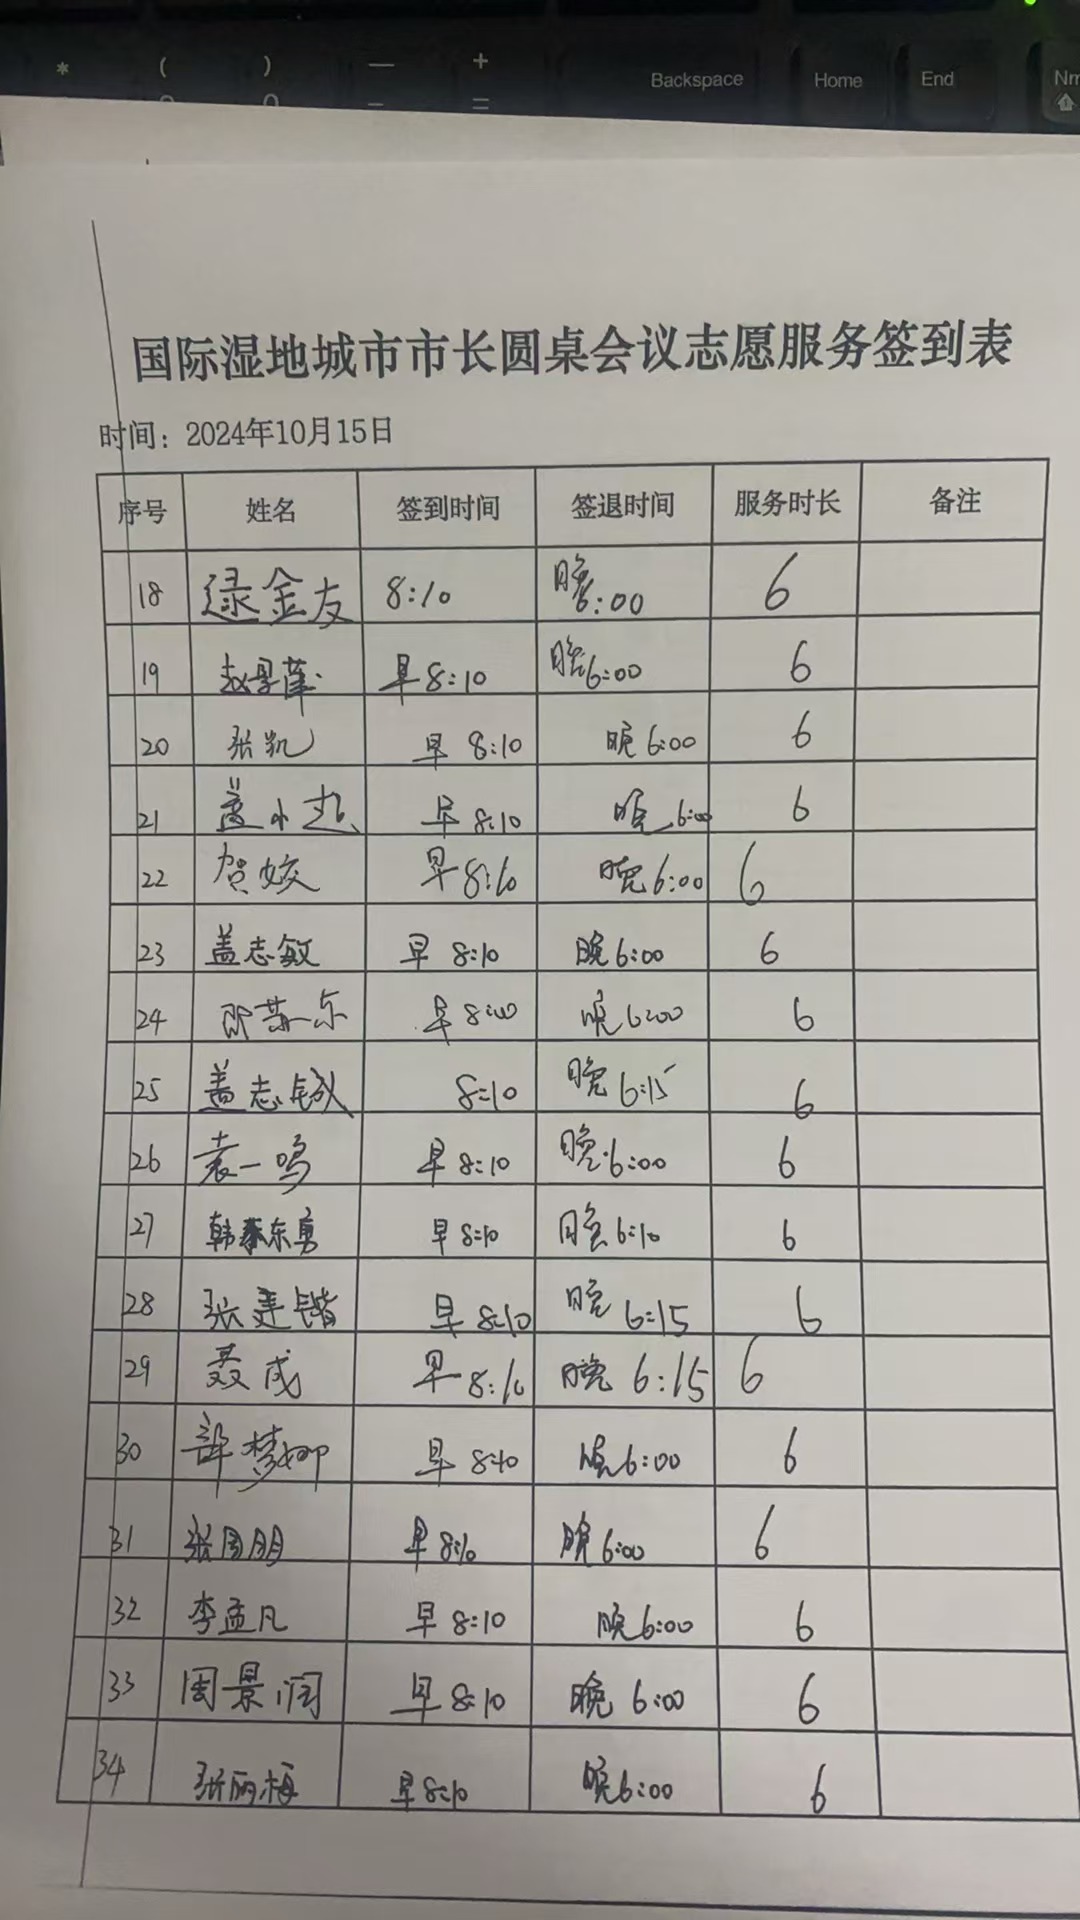 * ( ) — +
Backspace Home End
国际湿地城市市长圆桌会议志愿服务签到表
时间：2024年10月15日
序号 姓名 签到时间 签退时间 服务时长 备注
18 逯金友 8:10 晚6:00 6
19 赵景 早8:10 晚6:00 6
20 张凯 早 8:10 晚6:00 6
21 盖小起 早 8:10 晚6:00 6
22 贺姣 早8:10 晚6:00 6
23 盖志敏 早 8:10 晚6:00 6
24 早 8:00 晚6:00 6
25 盖志钺 8:10 晚6:15 6
26 袁一鸣 早8:10 晚6:00 6
27 韩东勇 早8:10 晚6:10 6
28 张建锴 早8:10 晚6:15 6
29 聂成 早8:10 晚6:15 6
30 薛梦娜 早8:10 晚6:00 6
31 张周朋 早8:10 晚6:00 6
32 李孟凡 早8:10 晚6:00 6
33 周景润 早8:10 晚6:00 6
34 张丽梅 早8:10 晚6:00 6